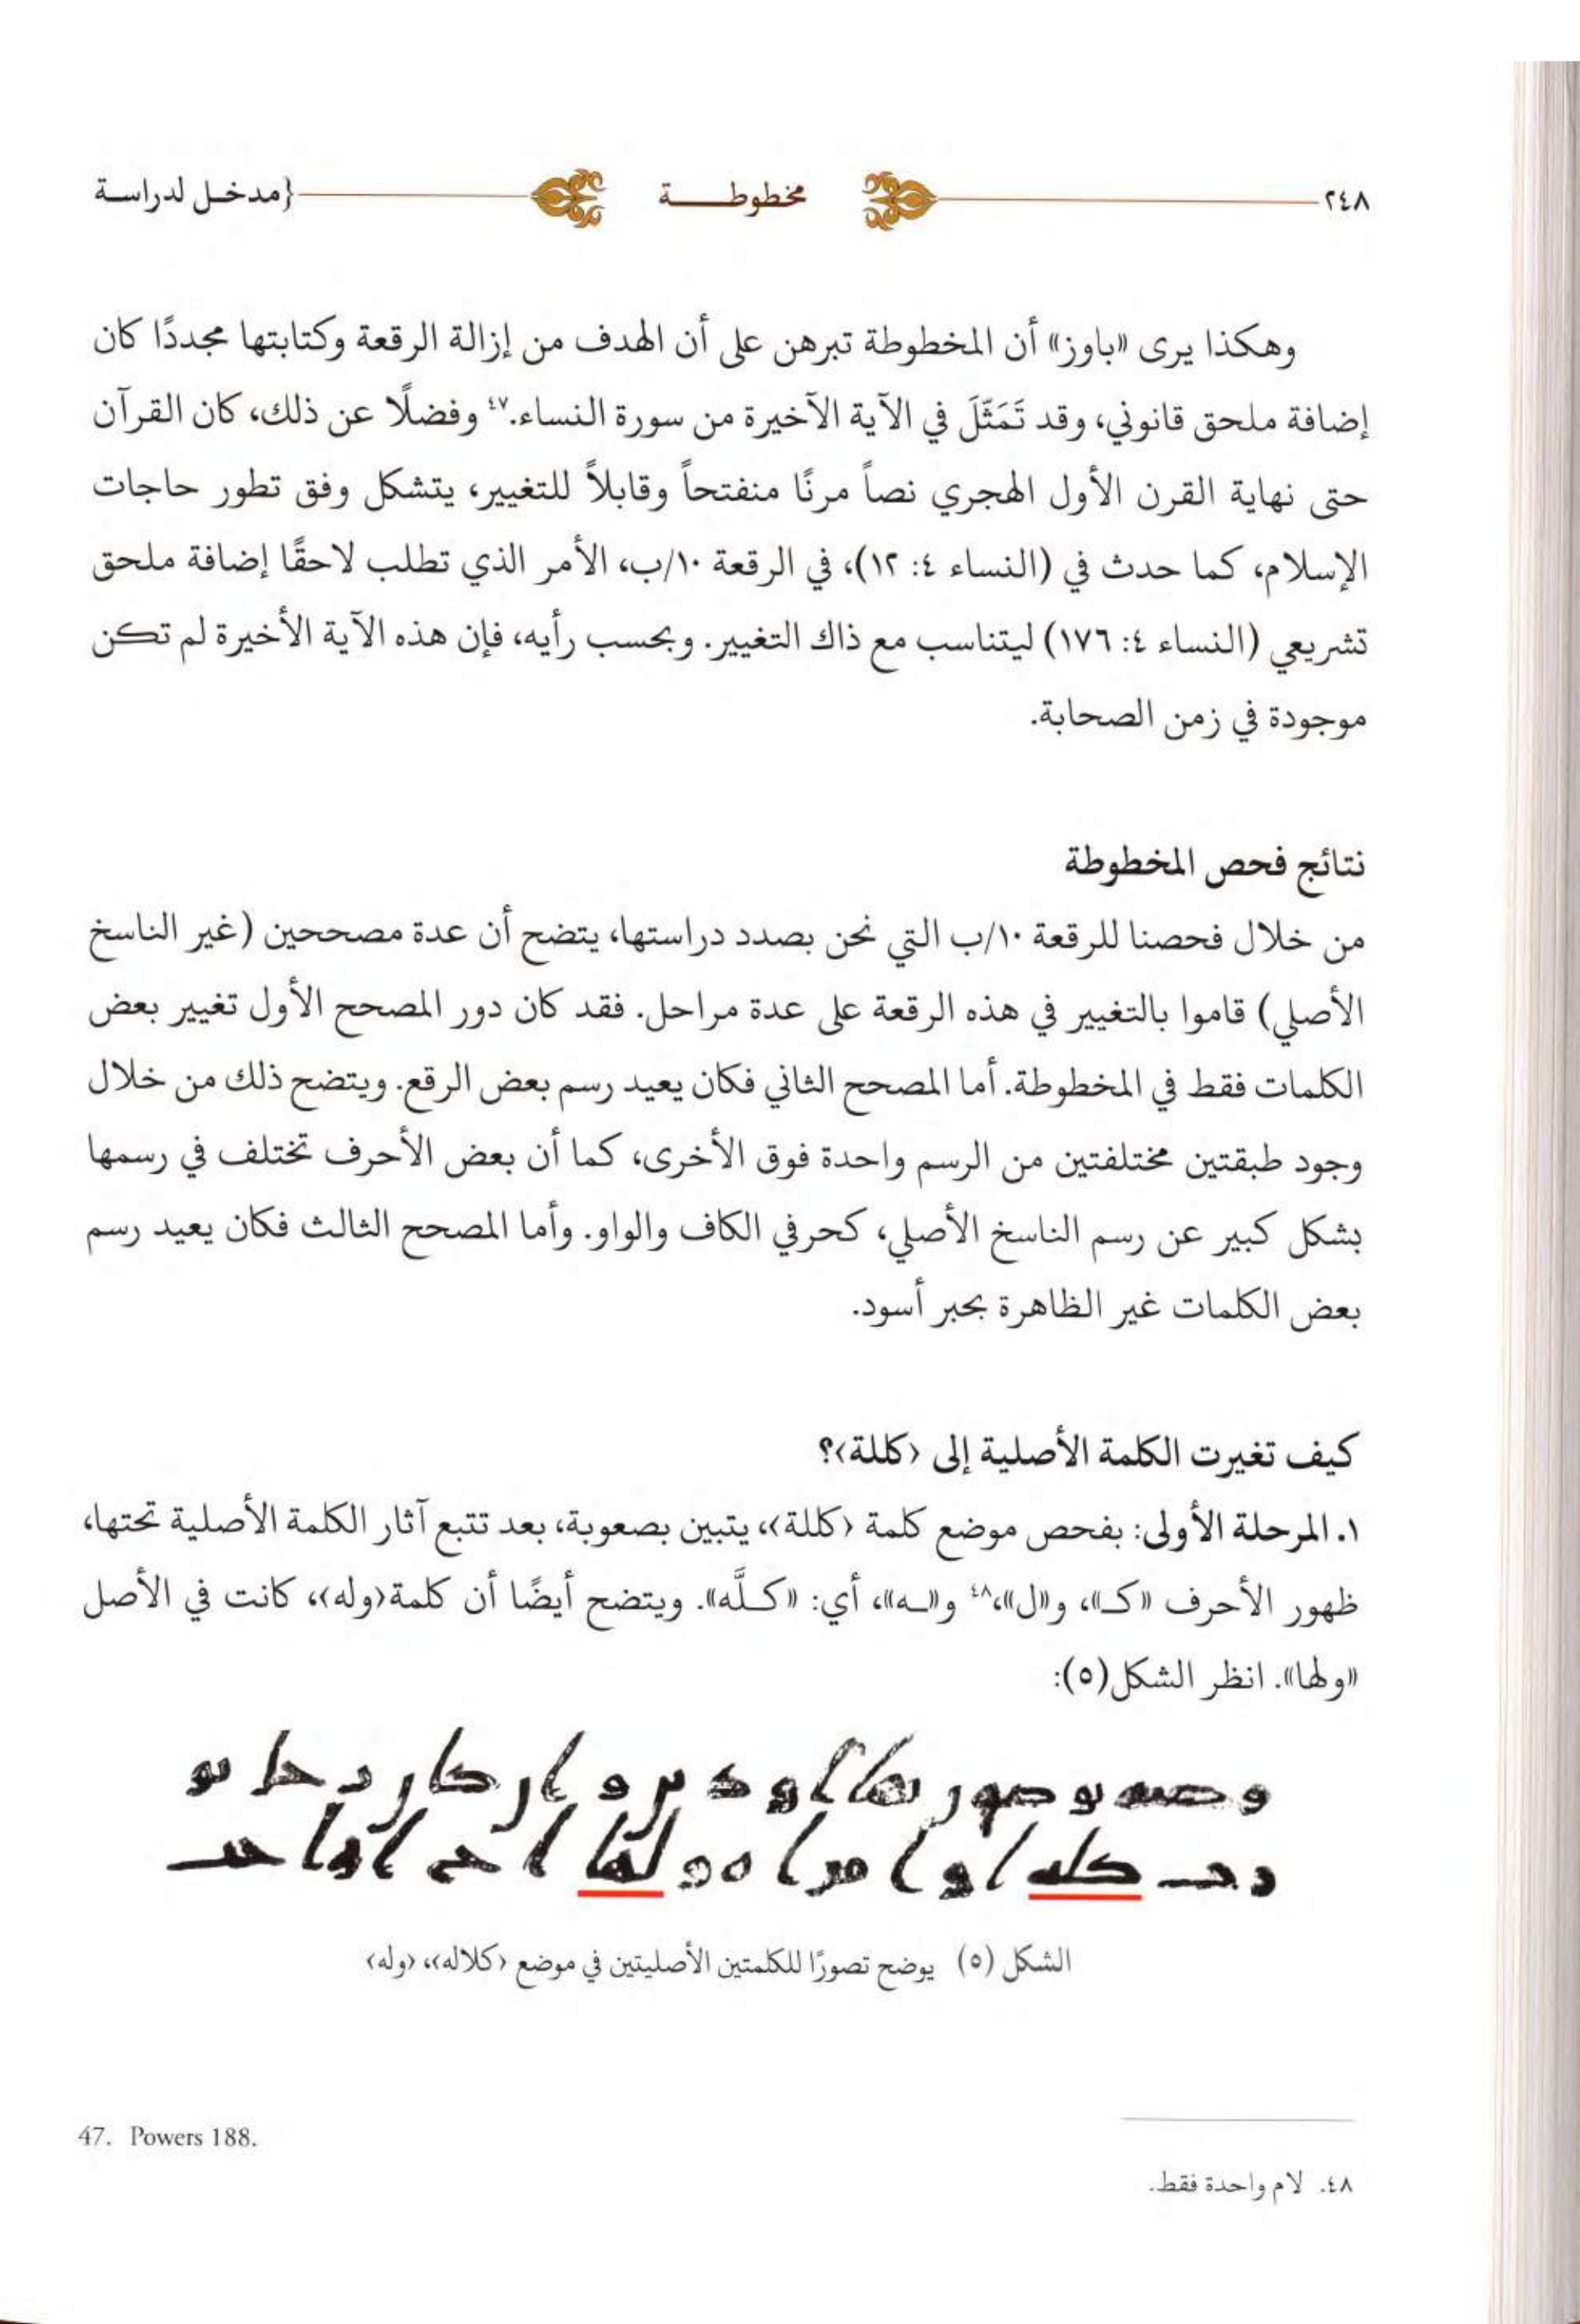 ٢٤٨ مخطوطـــــة {مدخـل لدراسـة
وهكذا يرى «باوز» أن المخطوطة تبرهن على أن الهدف من إزالة الرقعة وكتابتها مجددًا كان
إضافة ملحق قانوني، وقد تَمَثّلَ في الآية الآخيرة من سورة النساء.٤٧ وفضلًا عن ذلك، كان القرآن
حتى نهاية القرن الأول الهجري نصاً مرنًا منفتحاً وقابلاً للتغيير، يتشكل وفق تطور حاجات
الإسلام، كما حدث في (النساء ٤: ١٢)، في الرقعة ١٠/ب، الأمر الذي تطلب لاحقًا إضافة ملحق
تشريعي (النساء ٤: ١٧٦) ليتناسب مع ذاك التغيير. وبحسب رأيه، فإن هذه الآية الأخيرة لم تكن
موجودة في زمن الصحابة.
نتائج فحص المخطوطة
من خلال فحصنا للرقعة ١٠/ب التي نحن بصدد دراستها، يتضح أن عدة مصححين (غير الناسخ
الأصلي) قاموا بالتغيير في هذه الرقعة على عدة مراحل. فقد كان دور المصحح الأول تغيير بعض
الكلمات فقط في المخطوطة. أما المصحح الثاني فكان يعيد رسم بعض الرقع. ويتضح ذلك من خلال
وجود طبقتين مختلفتين من الرسم واحدة فوق الأخرى، كما أن بعض الأحرف تختلف في رسمها
بشكل كبير عن رسم الناسخ الأصلي، كحرفي الكاف والواو. وأما المصحح الثالث فكان يعيد رسم
بعض الكلمات غير الظاهرة بحبر أسود.
كيف تغيرت الكلمة الأصلية إلى ‹كللة›؟
١. المرحلة الأولى: بفحص موضع كلمة ‹كللة›، يتبين بصعوبة، بعد تتبع آثار الكلمة الأصلية تحتها،
ظهور الأحرف «كـ»، و«ل»،٤٨ و«ـه»، أي: «كـلَّه». ويتضح أيضًا أن كلمة‹وله›، كانت في الأصل
«ولها». انظر الشكل(٥):
الشكل (٥) يوضح تصورًا للكلمتين الأصليتين في موضع ‹كلاله›، ‹وله›
47. Powers 188.
٤٨. لام واحدة فقط.